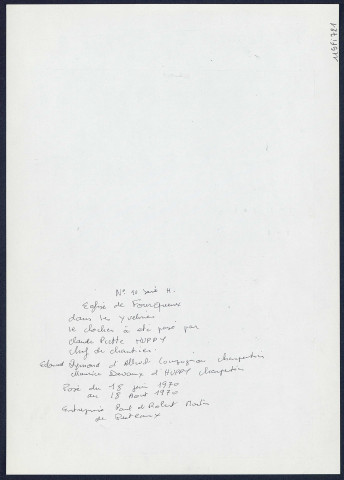 N° 12 série H.
Eglise de Fourqueux
dans les Yvelines
le clocher à été posé par
claude Piette HUPPY
chef de chantier.
Edmond Aymond d'Alfred Compagnon charpentier
Maurice Devaux d'HUPPY charpentier
Posé du 15 juin 1970
au 18 Aout 1970
entreprise Paul et Robert Martin
de Puteaux